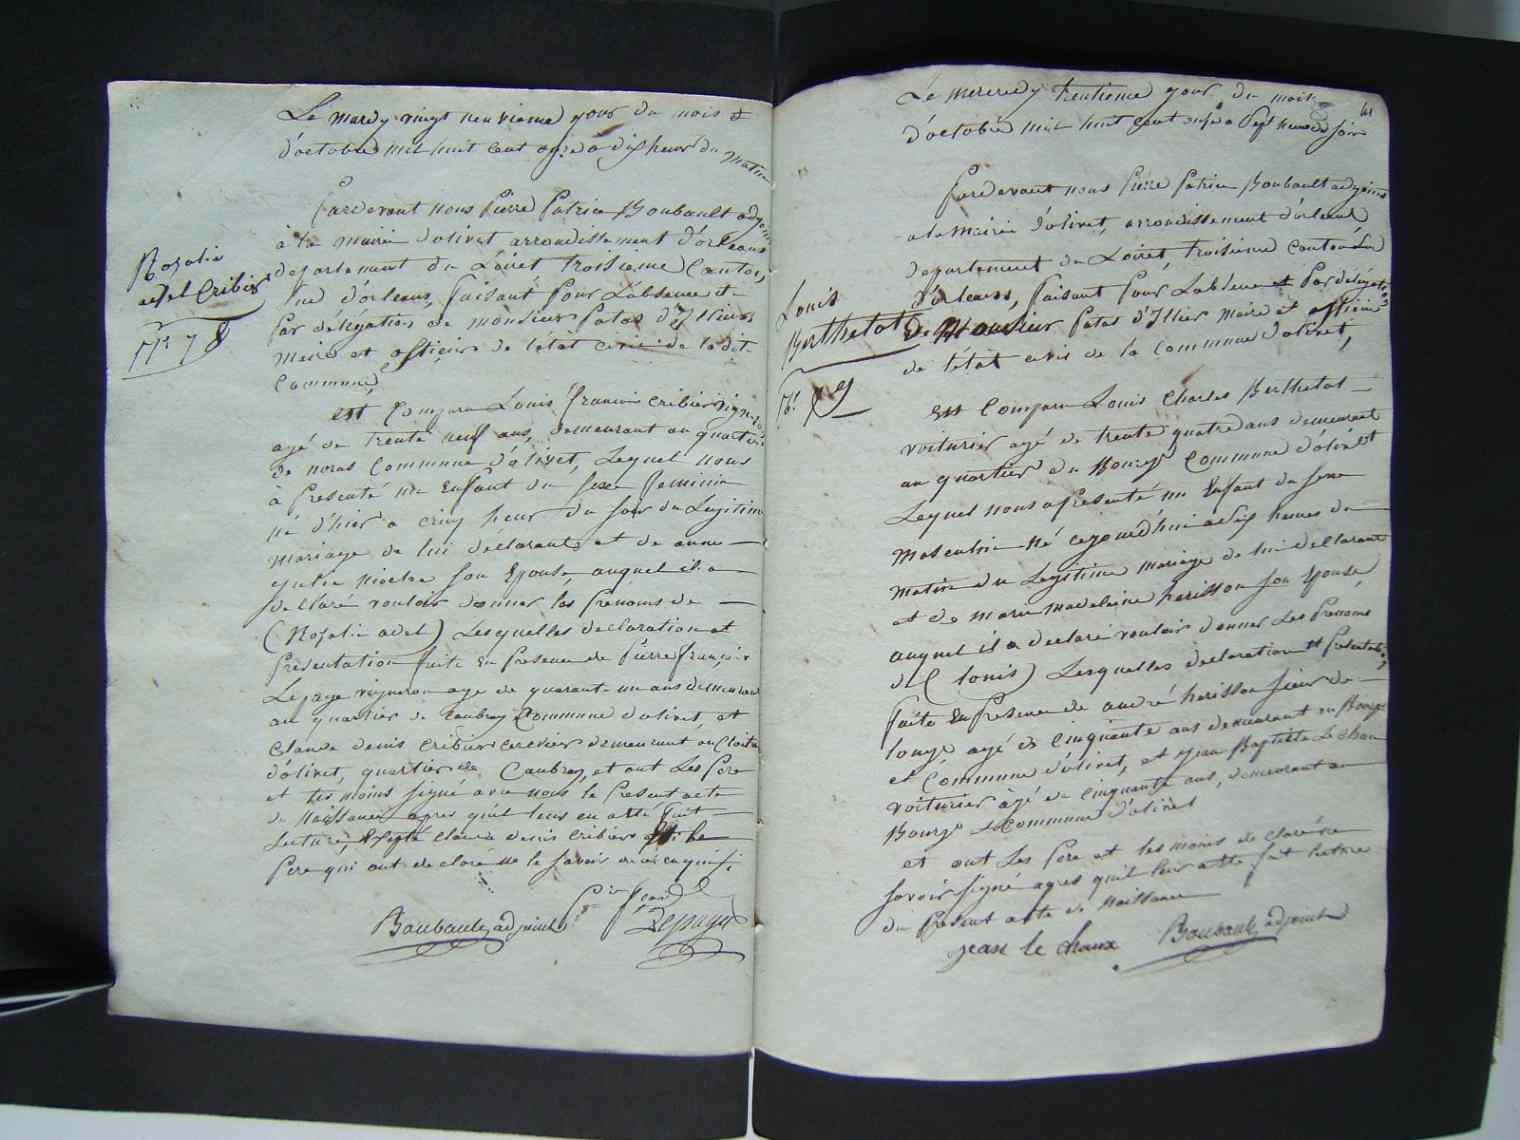 Le mardy vingt neuvieme jour du mois
d'octobre mil huit cent onze a dix heure du matin
Rosalie
adel Cribier
N° 78
Pardevant nous Pierre Patrice Boubault adjoint
à la mairie d'olivet arrondissement d'orleans
departement du Loiret, troisieme Canton,
sud d'orleans, faisant pour l'absence et
par délégation de monsieur Patas d'Illiers
maire et officier de l'état civil de la dit
Commune,
est Comparu Louis françois cribier vigneron
agé de trente neuf ans, demeurant au quartier
de noras Commune d'olivet, Lequel nous
à presenté un Enfant du sexe feminin
né d'hier a cinq heur du soir du Legitime
mariage de lui déclarant et de anne
julie son Epouse, auquel il a
declaré vouloir donner les prenoms de
(Rosalie adel) Lesquelles declaration et
presentation faite En presence de Pierre françois
Lepage vigneron age de quarante un ans demeurant
au quartier de Caubray Commune d'olivet, et
claude denis cribier demeurant au
d'olivet, quartier de Caubray, et ont Les Pere
et tes moins signé avec nous le present acte
de Naissance apres quil leur en a été fait
lecture, Exepté claude denis cribier et le
Pere qui ont de claré ne le savoir de ce enquis.
Boubault adjoint
Lepage
Le mercredy trentieme jour du mois 61
d'octobre mil huit cent onze a sept heure du soir
Pardevant nous Pierre Patrice Boubault adjoint
a la Mairie d'olivet, arrondissement d'orleans
departement du Loiret, troisieme canton sud
Louis
Berthelot
N° 79
d'orleans, faisant pour Labsence et Par délégation
De Monsieur Patas d'Illier Maire et officier
de l'état civil de la Commune d'olivet,
Est Comparu Louis Charles Berthelot
voiturier agé de trente quatre ans demeurant
au quartier du Bourg Commune d'olivet
Lequel nous a presenté un Enfant du sexe
masculin né cejourd'hui a dix heures du
matin du Legitime mariage de lui declarant
et de marie madeleine harisson son Epouse
auquel il a declaré vouloir donner Les Prenoms
de (Louis) Lesquelles declaration et presentation
faite En presence de andré harisson sieur de
longe agé de cinquante ans demeurant au Bourg
et Commune d'olivet, et jean Baptiste Le chau
voiturier agé de cinquante ans, demeurant au
Bourg et Commune d'olivet
et ont Les Pere et tes moins de claré ne
savoir signé apres quil leur a été fait lecture
du present acte de Naissance
jean le chaux Boubault adjoint